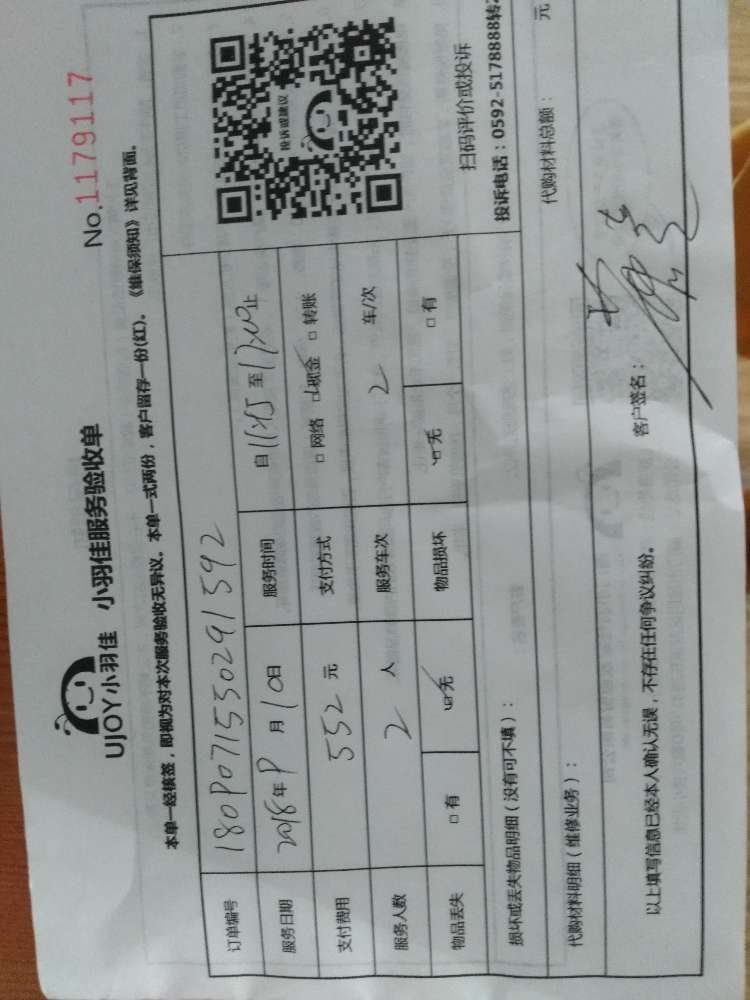 UJOY小羽佳 小羽佳服务验收单 No.1179117
本单一经核签，即视为对本次服务验收无异议。本单一式两份，客户留存一份(红)。《维保须知》详见背面。
订单编号 1809071550291592
服务日期 2018年9月10日 服务时间 自 至17:00止
支付费用 552元 支付方式 □网络 ☑现金 □转账
服务人数 2 人 服务车次 2 车/次
物品丢失 □有 ☑无 物品损坏 ☑无 □有
投诉或建议
扫码评价或投诉
投诉电话：0592-5178888转2
损坏或丢失物品明细（没有可不填）：
代购材料明细（维修业务）： 代购材料总额： 元
以上填写信息已经本人确认无误，不存在任何争议纠纷。 客户签名：